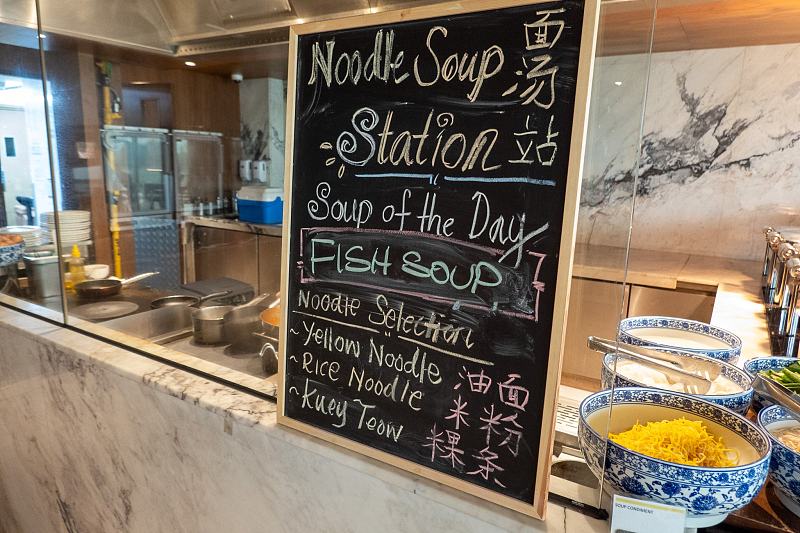 Noodle Soup 面
汤
Station 站
Soup of the Day
FISH SOUP
Noodle Selection
~Yellow Noodle 油面
~Rice Noodle 米粉
~Kuey Teow 粿条
SOUP CONDIMENT